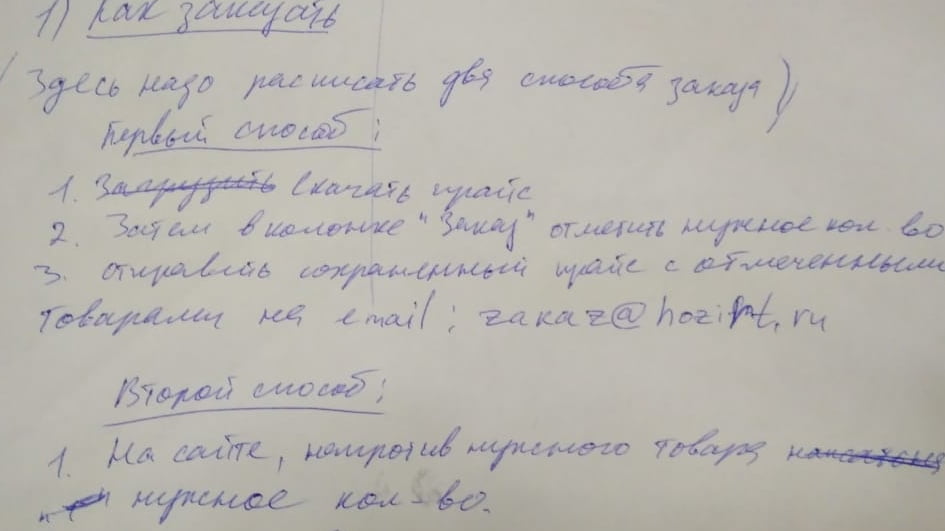 1) Как заказать
(Здесь надо расписать два способа заказа)
Первый способ:
1. Скачать прайс
2. Затем в колонке "Заказ" отметить нужное кол-во
3. отправить сохраненный прайс с отмеченными
товарами на email: zakaz@hozint.ru
Второй способ:
1. На сайте, напротив нужного товара
нужное кол-во.